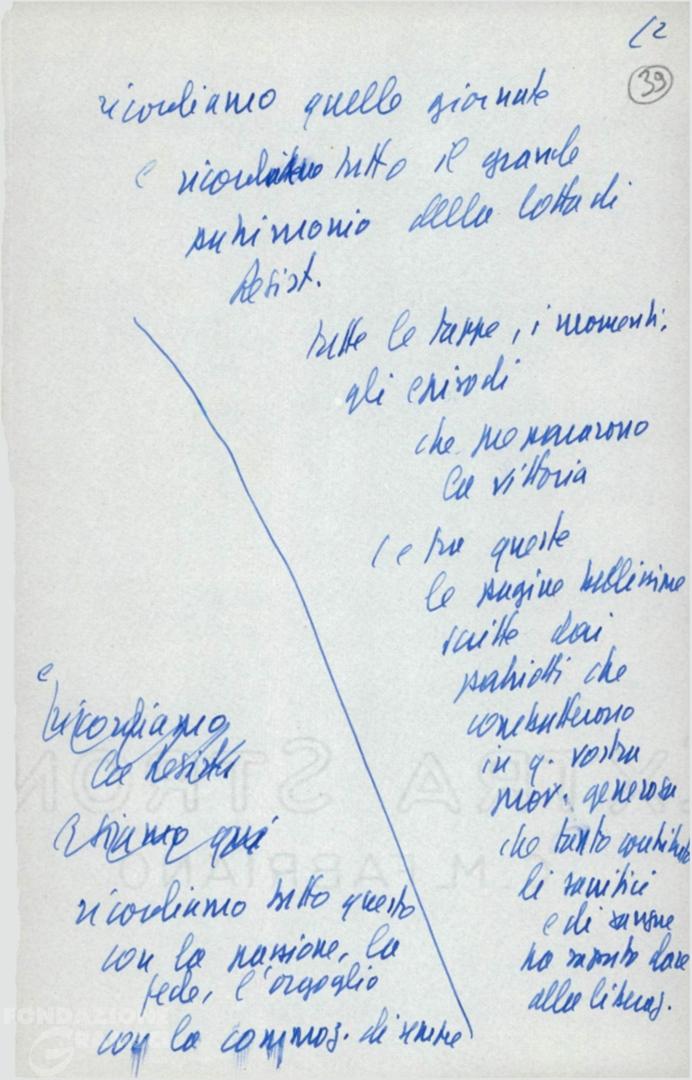 12
39
ricordiamo quelle giornate
e ricordiamo tutto il grande
patrimonio della lotta di
Resist.
tutte le tappe, i momenti,
gli episodi
che prepararono
la vittoria
(e tra queste
le pagine bellissime
scritte dai
patrioti che
combatterono
in q. vostra
prov. generosa
che tanto contributo
di sacrifici
e di sangue
ha saputo dare
alla liberaz.
e
ricordiamo
la Resist.
e siamo qui
ricordiamo tutto questo
con la passione, la
fede, l'orgoglio
con la commoz. di sempre
EXTRA STRONG
C.M. FABRIANO
FONDAZIONE
GRAMSCI